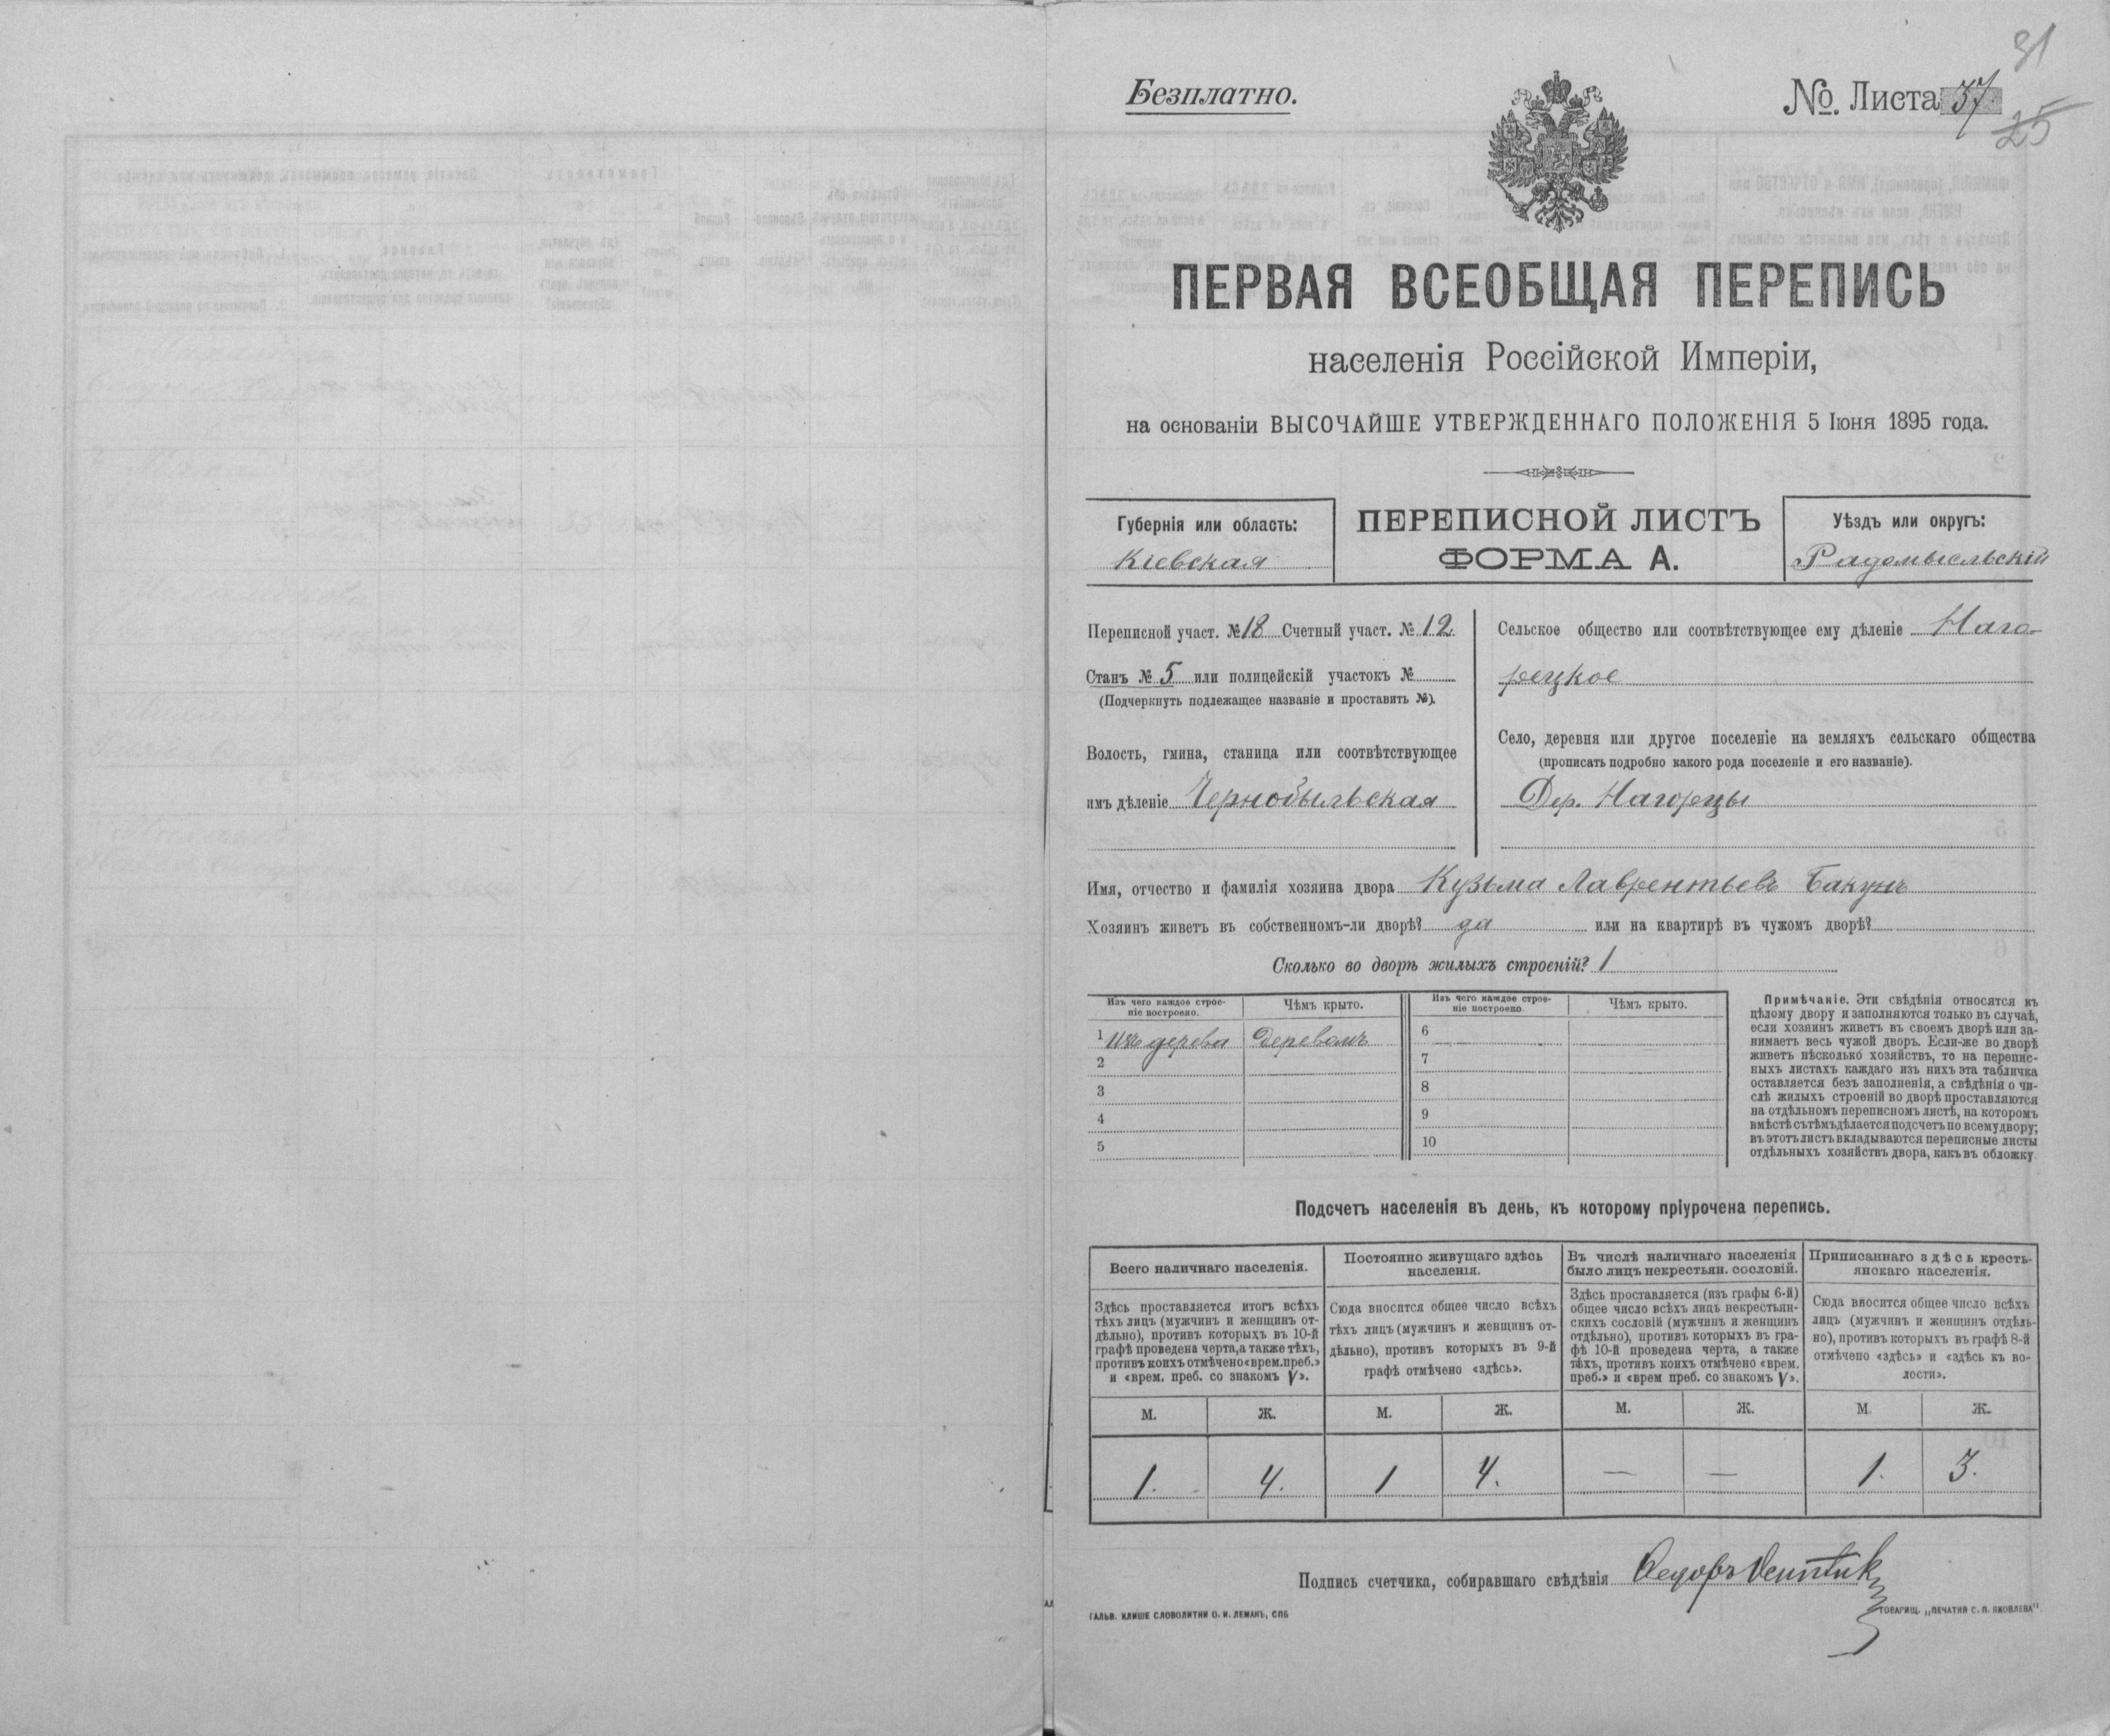 31
Безплатно.
№ Листа 37
25
ПЕРВАЯ ВСЕОБЩАЯ ПЕРЕПИСЬ
населенія Россійской Имперіи,
на основаніи ВЫСОЧАЙШЕ УТВЕРЖДЕННАГО ПОЛОЖЕНІЯ 5 Іюня 1895 года.
Губернія или область:
Кіевская
ПЕРЕПИСНОЙ ЛИСТЪ
ФОРМА А.
Уѣздъ или округъ:
Радомысльскій
Переписной участ. № 18 Счетный участ. № 12
Станъ № 5 или полицейскій участокъ №
(Подчеркнуть подлежащее названіе и проставить №).
Волость, гмина, станица или соотвѣтствующее
имъ дѣленіе Чернобыльская
Сельское общество или соотвѣтствующее ему дѣленіе Наго-
рецкое
Село, деревня или другое поселеніе на земляхъ сельскаго общества
(прописать подробно какого рода поселеніе и его названіе).
Дер. Нагорцы
Имя, отчество и фамилія хозяина двора Кузьма Лаврентьевъ Бакунъ
Хозяинъ живетъ въ собственномъ-ли дворѣ? да или на квартирѣ въ чужомъ дворѣ?
Сколько во дворѣ жилыхъ строеній? 1
Изъ чего каждое строе-
ніе построено.
Чѣмъ крыто.
Изъ чего каждое строе-
ніе построено.
Чѣмъ крыто.
1 Изъ дерева Деревомъ 6
2 7
3 8
4 9
5 10
Примѣчаніе. Эти свѣдѣнія относятся къ
цѣлому двору и заполняются только въ случаѣ,
если хозяинъ живетъ въ своемъ дворѣ или за-
нимаетъ весь чужой дворъ. Если-же во дворѣ
живетъ нѣсколько хозяйствъ, то на перепис-
ныхъ листахъ каждаго изъ нихъ эта табличка
оставляется безъ заполненія, а свѣдѣнія о чи-
слѣ жилыхъ строеній во дворѣ проставляются
на отдѣльномъ переписномъ листѣ, на которомъ
вмѣстѣ съ тѣмъ дѣлается подсчетъ по всему двору;
въ этотъ листъ вкладываются переписные листы
отдѣльныхъ хозяйствъ двора, какъ въ обложку
Подсчетъ населенія въ день, къ которому пріурочена перепись.
Всего наличнаго населенія.
Здѣсь проставляется итогъ всѣхъ
тѣхъ лицъ (мужчинъ и женщинъ от-
дѣльно), противъ которыхъ въ 10-й
графѣ проведена черта, а также тѣхъ,
противъ коихъ отмѣчено «врем. преб.»
и «врем. преб. со знакомъ V».
Постоянно живущаго здѣсь
населенія.
Сюда вносится общее число всѣхъ
тѣхъ лицъ (мужчинъ и женщинъ от-
дѣльно), противъ которыхъ въ 9-й
графѣ отмѣчено «здѣсь».
Въ числѣ наличнаго населенія
было лицъ некрестьян. сословій.
Здѣсь проставляется (изъ графы 6-й)
общее число всѣхъ лицъ некрестьян-
скихъ сословій (мужчинъ и женщинъ
отдѣльно), противъ которыхъ въ гра-
фѣ 10-й проведена черта, а также
тѣхъ, противъ коихъ отмѣчено «врем.
преб.» и «врем преб. со знакомъ V».
Приписаннаго здѣсь кресть-
янскаго населенія.
Сюда вносится общее число всѣхъ
лицъ (мужчинъ и женщинъ отдѣль-
но), противъ которыхъ въ графѣ 8-й
отмѣчено «здѣсь» и «здѣсь къ во-
лости».
М. Ж. М. Ж. М. Ж. М. Ж.
1. 4. 1 4. — — 1. 3.
Подпись счетчика, собиравшаго свѣдѣнія Ѳедоръ
ГАЛЬВ. КЛИШЕ СЛОВОЛИТНИ О. И. ЛЕМАНЪ, СПБ
ТОВАРИЩ. „ПЕЧАТНЯ С. П. ЯКОВЛЕВА"